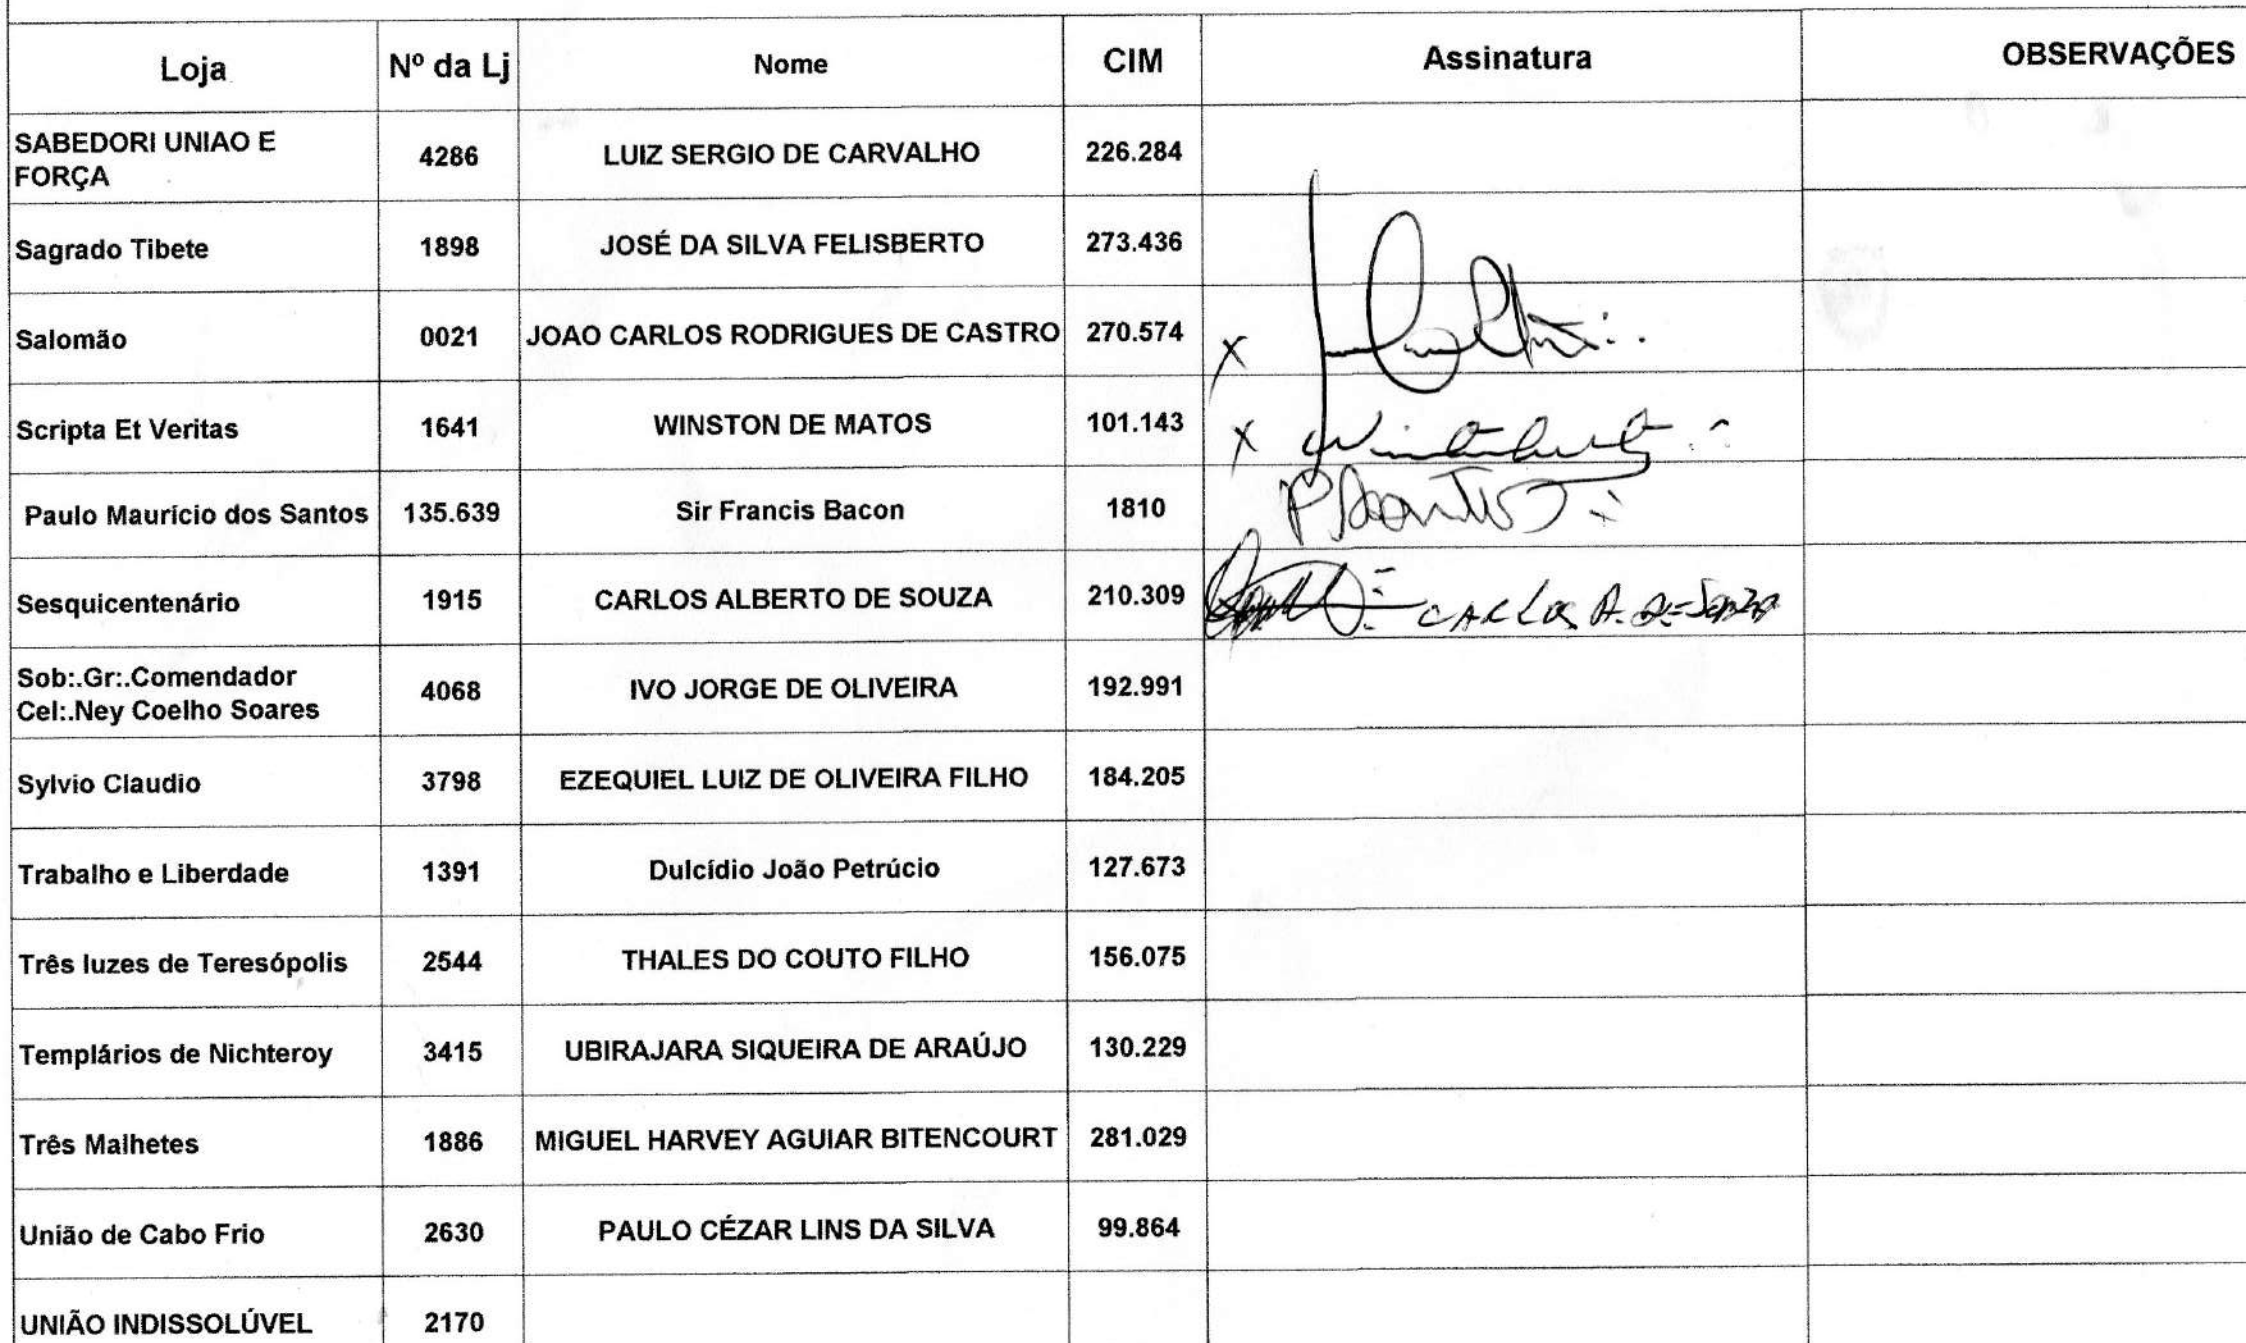 Loja Nº da Lj Nome CIM Assinatura OBSERVAÇÕES
SABEDORI UNIAO E
FORÇA 4286 LUIZ SERGIO DE CARVALHO 226.284
Sagrado Tibete 1898 JOSÉ DA SILVA FELISBERTO 273.436
Salomão 0021 JOAO CARLOS RODRIGUES DE CASTRO 270.574 X
Scripta Et Veritas 1641 WINSTON DE MATOS 101.143 X
Paulo Maurício dos Santos 135.639 Sir Francis Bacon 1810 PSantos
Sesquicentenário 1915 CARLOS ALBERTO DE SOUZA 210.309 CARLOS A. de Souza
Sob:.Gr:.Comendador
Cel:.Ney Coelho Soares 4068 IVO JORGE DE OLIVEIRA 192.991
Sylvio Claudio 3798 EZEQUIEL LUIZ DE OLIVEIRA FILHO 184.205
Trabalho e Liberdade 1391 Dulcídio João Petrúcio 127.673
Três luzes de Teresópolis 2544 THALES DO COUTO FILHO 156.075
Templários de Nichteroy 3415 UBIRAJARA SIQUEIRA DE ARAÚJO 130.229
Três Malhetes 1886 MIGUEL HARVEY AGUIAR BITENCOURT 281.029
União de Cabo Frio 2630 PAULO CÉZAR LINS DA SILVA 99.864
UNIÃO INDISSOLÚVEL 2170